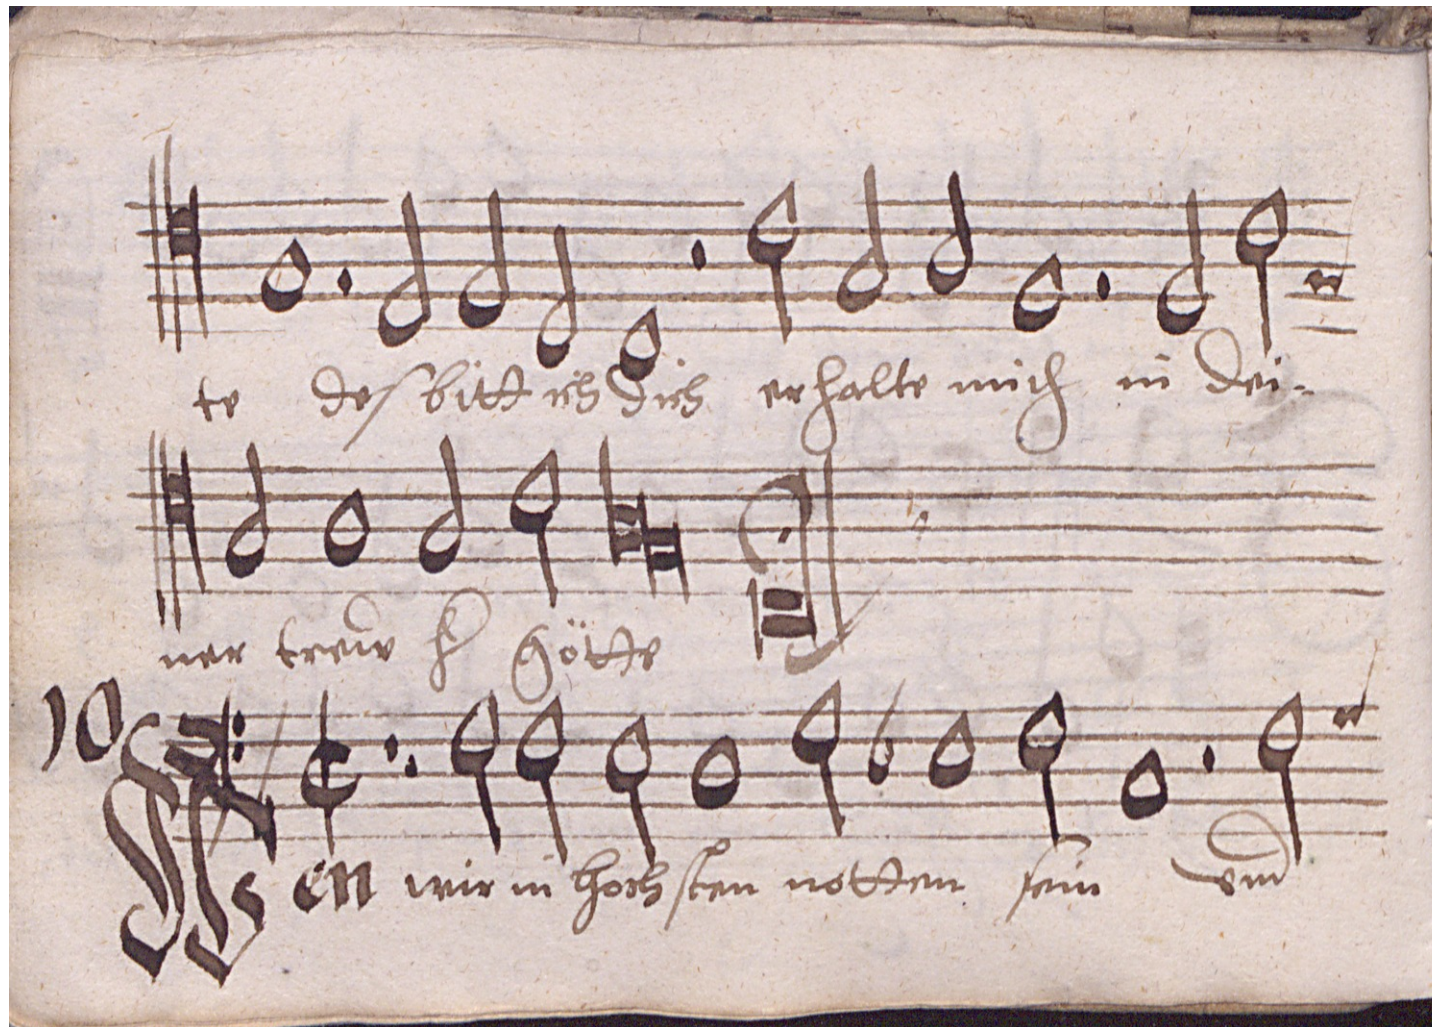 te des bitt ich dich erhalte mich in dei-
ner trew h götte
10
Wen wir in hochsten notten sein vnd